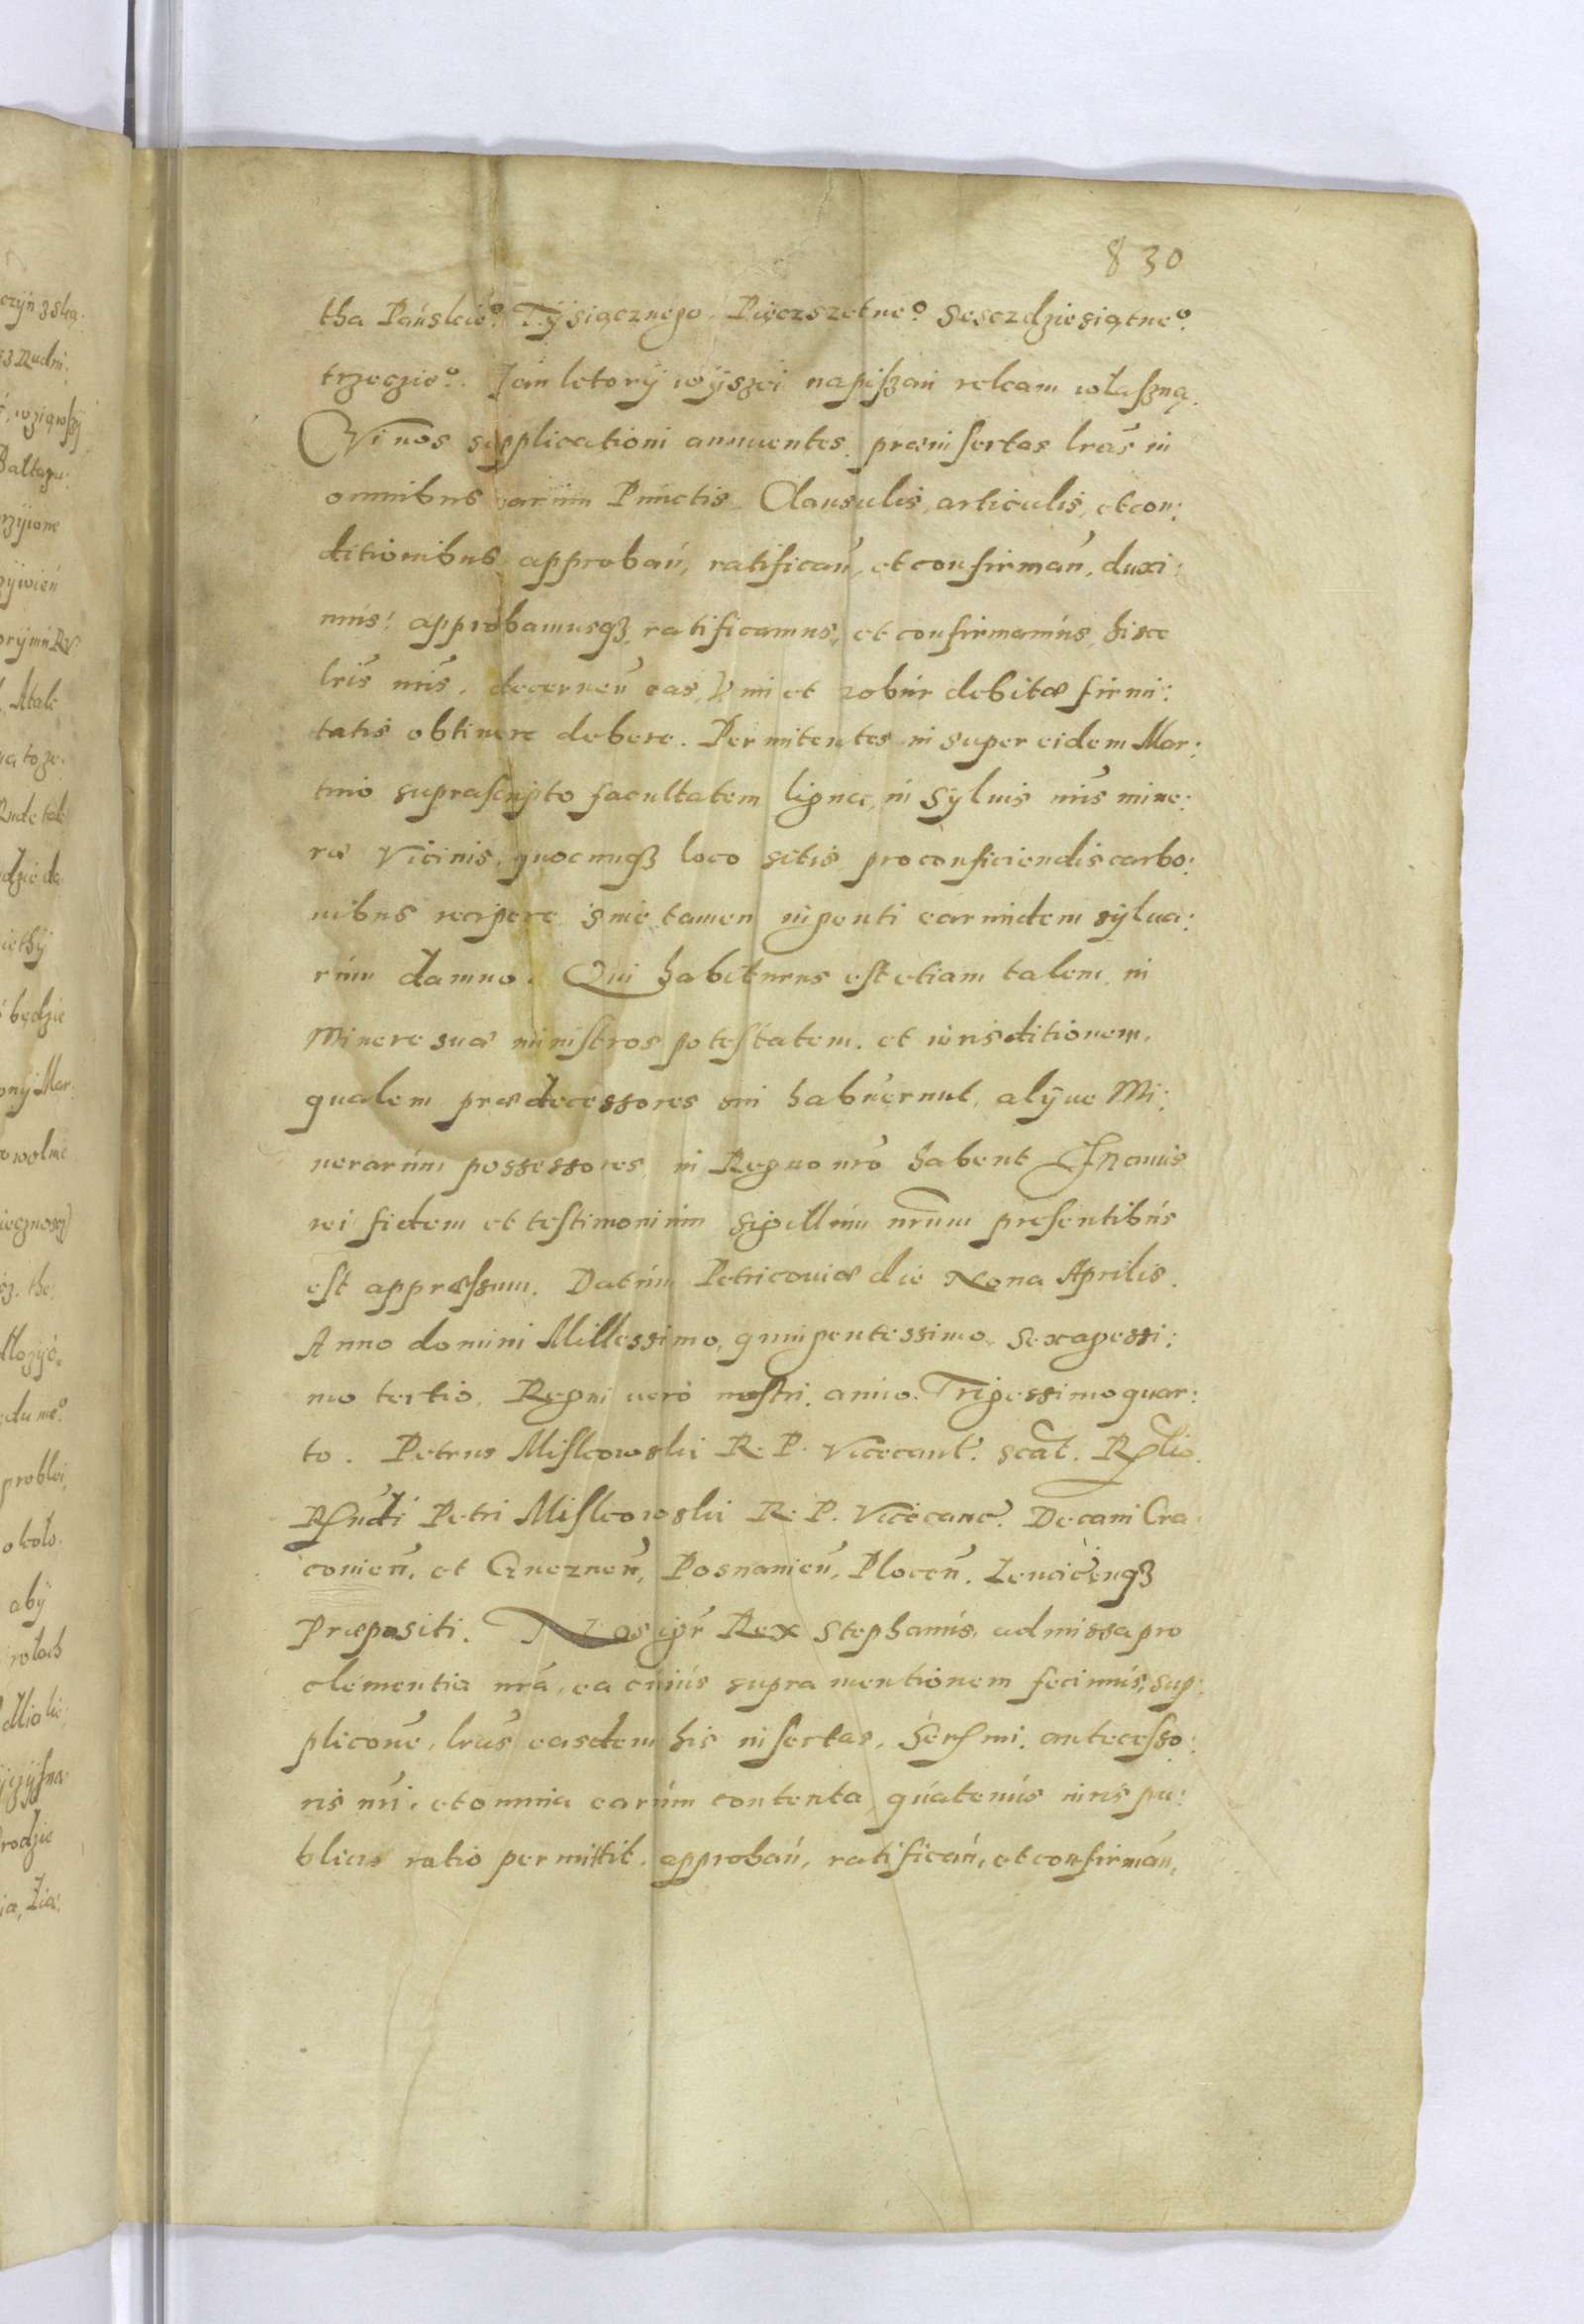 830
tha Pańskieo. Tysiącznego Pięczszetneo. Sesczdziesiątneo.
trzeczieo. Jan letory wyszei napiszan relcam własną.
Cui nos supplicationi annuentes, præinsertas lras in
omnibus earum Punctis, Clausulis, articulis, et con:
ditionibus approban, ratifican, et confirman, duxi:
mus: approbamusqz, ratificamus, et confirmamus, hisce
lris nris, decernen eas, Vim et robur debitæ firmi:
tatis obtinere debere. Permitentes insuper eidem Mar:
tino suprascripto facultatem ligna, in Syluis nris mine:
ræ Vicinis, quocunqz loco sitis pro conficiendis carbo:
nibus recipere sine tamen ingenti earumdem sylua:
rum damno. Qui habiturus est etiam talem in
Mineræ suæ ministros potestatem, et iurisditionem,
qualem prædecessores sui habuerunt, alyue Mi:
nerarum possessores, in Regno nro habent In cuius
rei fidem et testimonium sigillum nrum presentibus
est appræssum. Datum Petricouiæ die Nona Aprilis.
Anno domini Millessimo, quingentessimo Sexagessi:
mo tertio, Regni uero nostri anno. Trigessimo quar:
to. Petrus Miskowski R. P. Vicecanc. scat. Rlio.
Rndi Petri Miskowskii R. P. Vicecanc. Decani Cra:
couien, et Gneznen, Posnanien, Plocen. Lencicenqz
Præpositi. Nos igr Rex Stephanus, admissa pro
clementia nra, ea cuius supra mentionem fecimus, sup:
plicone, lras easdem his insertas, Sersmi. antecesso:
ris nri, et omnia earum contenta, quatenus iuris pu:
blici ratio permittit, approban, ratifican, et confirman,